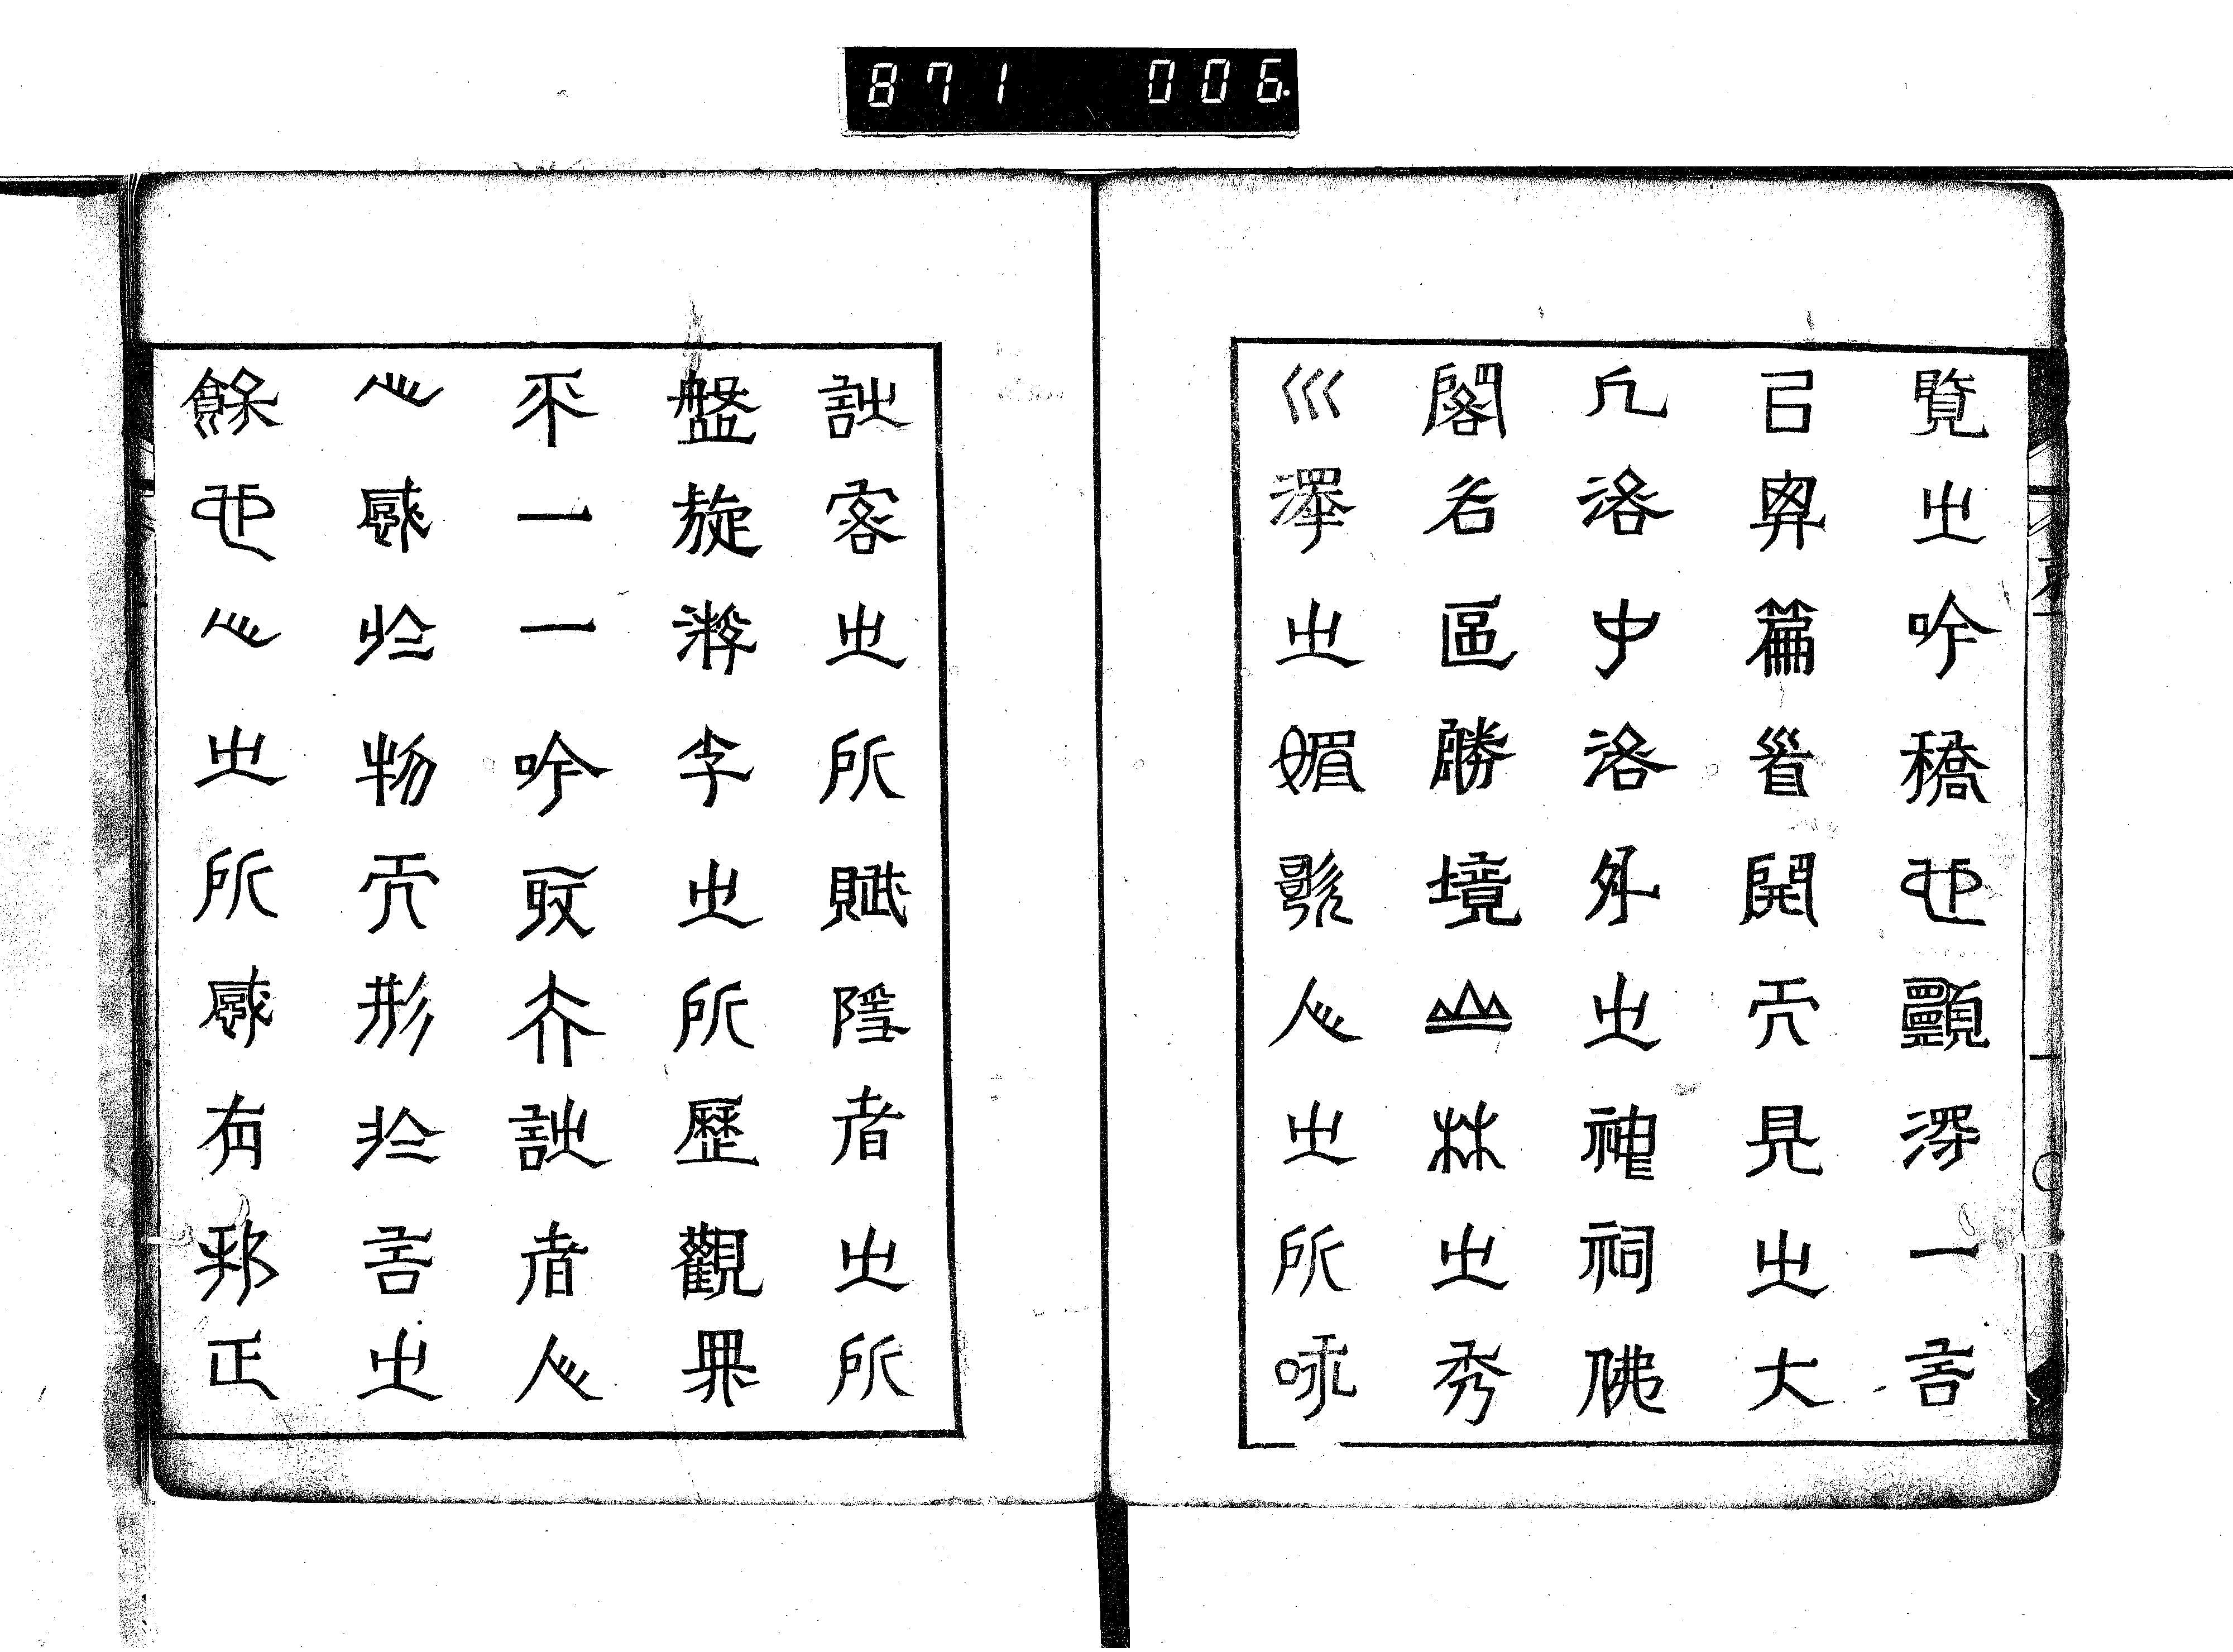 871 006
覽之吟稿也願深一言
以弁篇首開而見之大
凡洛中洛外之神祠佛
閣名區勝境山林之秀
川澤之媚歌人之所咏
詩客之所賦隱者之所
盤旋游子之所歷觀
不一一吟取矣詩者人
心感於物而形於言之
餘也心之所感有邪正